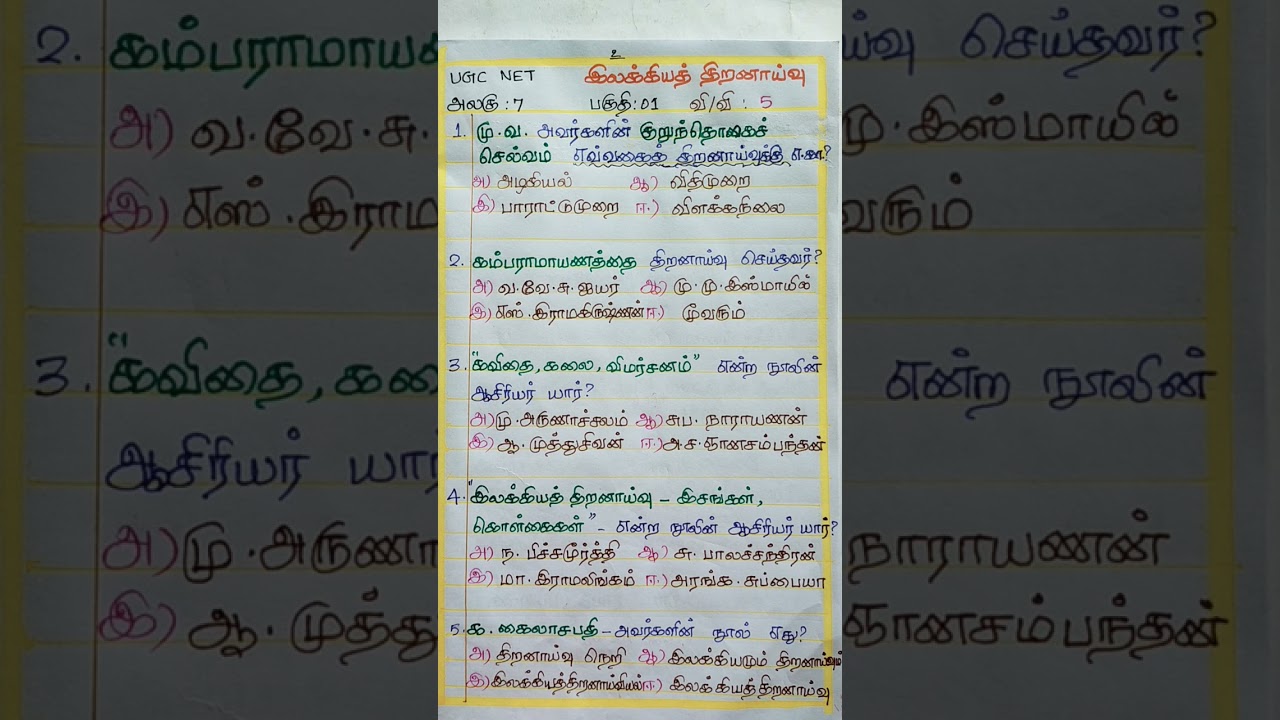 2
UGC NET இலக்கியத் திறனாய்வு
அலகு : 7 பகுதி : 01 வி/வி : 5
1. மு. வ. அவர்களின் குறுந்தொகைச்
செல்வம் எவ்வகைத் திறனாய்வுக்கு எ.கா?
அ) அழகியல் ஆ) விதிமுறை
இ) பாராட்டுமுறை ஈ) விளக்கநிலை
2. கம்பராமாயணத்தை திறனாய்வு செய்தவர்?
அ) வ.வே.சு.ஐயர் ஆ) மு.மு.இஸ்மாயில்
இ) எஸ்.இராமகிருஷ்ணன் ஈ) மூவரும்
3. "கவிதை, கலை, விமர்சனம்" என்ற நூலின்
ஆசிரியர் யார்?
அ) மு.அருணாச்சலம் ஆ) சுப. நாராயணன்
இ) ஆ. முத்துசிவன் ஈ) அ.ச.ஞானசம்பந்தன்
4. "இலக்கியத் திறனாய்வு - இசங்கள்,
கொள்கைகள்" - என்ற நூலின் ஆசிரியர் யார்?
அ) ந. பிச்சமூர்த்தி ஆ) சு. பாலச்சந்திரன்
இ) மா. இராமலிங்கம் ஈ) அரங்க. சுப்பையா
5. க. கைலாசபதி - அவர்களின் நூல் எது?
அ) திறனாய்வு நெறி ஆ) இலக்கியமும் திறனாய்வும்
இ) இலக்கியத்திறனாய்வியல் ஈ) இலக்கியத்திறனாய்வு